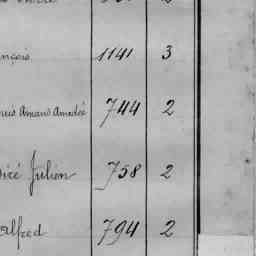 ançois 1141 3
ouis Amans Amedée 744 2
siré Julien 758 2
Alfred 794 2